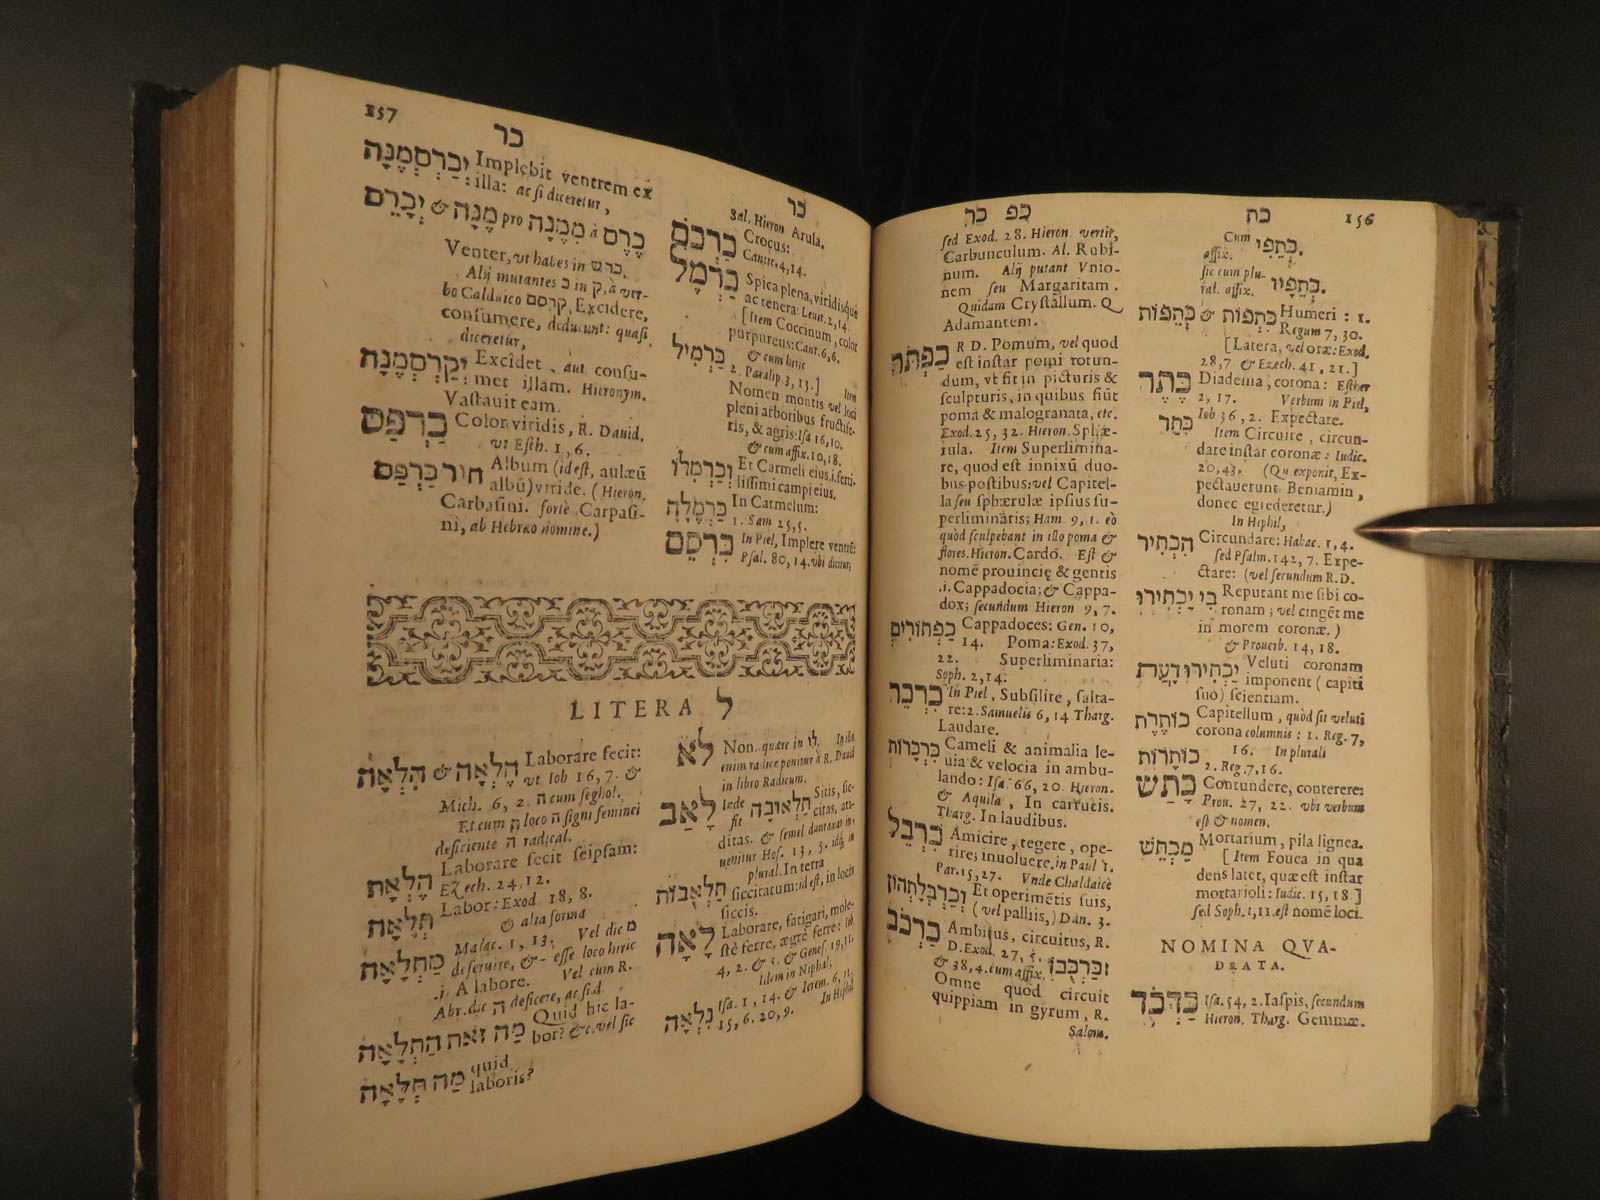 כת 156
Cum affix. כְּתֵפִי.
sic cum plural. affix. כְּתֵפָיו.
כְּתֵפוֹת & כִּתְפוֹת Humeri : 1.
Regum 7, 30.
[Latera, vel oræ: Exod.
28,7 & Ezech. 41, 21.]
כֶּתֶר Diadema, corona : Esther
2, 17. Verbum in Piel,
כִּתֵּר Iob 36, 2. Expectare.
Item Circuire, circun-
dare instar coronæ : Iudic.
20,43. (Qu exponit, Ex-
pectauerunt Beniamin,
donec egrederetur.)
In Hiphil,
הִכְתִּיר Circundare: Habac. 1, 4.
sed Psalm. 142, 7. Expe-
ctare: (vel secundum R.D.
בִּי יַכְתִּירוּ Reputant me sibi co-
ronam ; vel cingēt me
in morem coronæ.)
& Prouerb. 14, 18.
יַכְתִּירוּ דָעַת Veluti coronam
imponent (capiti
suo) scientiam.
כּוֹתֶרֶת Capitellum, quòd sit veluti
corona columnis : 1. Reg. 7,
16. In plurali
כּוֹתָרוֹת 2. Reg. 7, 16.
כָּתַשׁ Contundere, conterere:
Prou. 27, 22. vbi verbum
est & nomen.
מַכְתֵּשׁ Mortarium, pila lignea.
[Item Fouea in qua
dens latet, quæ est instar
mortarioli : Iudic. 15, 18]
sed Soph. 1, 11. est nomē loci.
NOMINA QVA-
DRATA.
כַּדְכֹּד Isa. 54, 2. Iaspis, secundum
Hieron. Tharg. Gemmæ.
כפ כר
sed Exod. 28. Hieron vertit,
Carbunculum. Al. Rubi-
num. Alij putant Vnio-
nem seu Margaritam.
Quidam Crystallum. Q
Adamantem.
כַּפְתֹּר R D. Pomum, vel quod
est instar pomi rotun-
dum, vt fit in picturis &
sculpturis, in quibus fiūt
poma & malogranata, etc.
Exod. 25, 32. Hieron. Sphæ-
rula. Item Superlimina-
re, quod est innixū duo-
bus postibus: vel Capitel-
la seu sphærulæ ipsius su-
perliminaris; Ham 9, 1. eò
quòd sculpebant in illo poma &
flores. Hieron. Cardo. Est &
nomē prouincię & gentis
.i. Cappadocia; & Cappa-
dox; secundum Hieron 9, 7.
כַּפְתּוֹרִים Cappadoces: Gen. 10,
14. Poma: Exod. 37,
22. Superliminaria:
Soph. 2, 14.
כִּרְכֵּר In Piel, Subsilire, salta-
re: 2. Samuelis 6, 14 Tharg.
Laudare.
כִּרְכָּרוֹת Cameli & animalia le-
uia & velocia in ambu-
lando : Isa. 66, 20. Hieron.
& Aquila, In carrucis.
Tharg. In laudibus.
כִּרְבֵּל Amicire, tegere, ope-
rire; inuoluere. in Paul 1.
Par. 15, 27. Vnde Chaldaicè
וְכַרְבְּלָתְהוֹן Et operimētis suis,
(vel palliis,) Dan. 3.
כַּרְכֹּב Ambitus, circuitus, R.
D. Exod. 27, 5.
& 38, 4. cum affix. וְכַרְכֻּבּוֹ
Omne quod circuit
quippiam in gyrum, R.
Salom.
157 כר
Sal. Hieron Arula.
כַּרְכֹּם Crocus:
Cantic. 4, 14.
כַּרְמֶל Spica plena, viridisque
ac tenera: Leuit. 2, 14.
[Item Coccinum, color
purpureus: Cant. 6, 6.
& cum hiric
כַּרְמִיל 2. Paralip. 3, 13.] Item
Nomen montis vel loci
pleni arboribus fructife-
ris, & agris: Isa 16, 10.
& cum affix. 10, 18.
וְכַרְמִלּוֹ Et Carmeli eius .i. ferti-
lissimi campi eius,
כַּרְמֶלָה In Carmelum:
1. Sam 25, 5.
כִּרְסֵם In Piel, Implere ventrē:
Psal. 80, 14. vbi dicitur,
כר
יְכַרְסְמֶנָּה Implebit ventrem ex
illa: ac si diceretur,
יְכָרֵס & מֶנָּה pro מִמֶּנָּה à כֶּרֶס
Venter, vt habes in כרש.
Alij mutantes כ in ק, à ver-
bo Caldaico קרסם, Excidere,
consumere, deducunt: quasi
diceretur,
יְקַרְסְמֶנָּה Excidet, aut consu-
met illam. Hieronym.
Vastauit eam.
כַּרְפַּס Color viridis, R. Dauid.
vt Esth. 1, 6.
חוּר כַּרְפַּס Album (id est, aulæū
albū) viride. (Hieron.
Carbasini. fortè Carpasi-
ni, ab Hebræo nomine.)
LITERA ל
לֹא Non. quære in לו. In illa
enim radice ponitur à R. Dauid
in libro Radicum.
לָאַב Inde fit תַּלְאוּבָה Sitis, sic-
citas, ari-
ditas. & semel duntaxat in-
uenitur Hos. 13, 5. idq; in
plural. In terra
תַּלְאֻבוֹת siccitatum: id est, in locis
siccis.
לָאָה Laborare, fatigari, mole-
stè ferre, ægrè ferre : Iob
4, 2. & 5. & Genes. 19, 11.
Idem in Niphal,
נִלְאָה Isa. 1, 14. & Ierem. 6, 11.
15, 6. 20, 9. In Hiphil
הֶלְאָה & הִלְאָה Laborare fecit:
vt Iob 16, 7. &
Mich. 6, 2. ה cum seghol.
Et cum ָ loco ה signi feminei
deficiente ה radical.
הֶלְאָת Laborare fecit seipsam:
Ezech. 24, 12.
תְּלָאָה Labor : Exod 18, 8.
& alia forma
מַתְלָאָה Malac. 1, 13. Vel dic מ
deseruire, & - esse loco hiric
.i. A labore. Vel cum R.
Abr. dic ה deficere, ac si d.
מַה זֹאת הַתְּלָאָה Quid hic la-
bor? &c. vel sic
מַה תְּלָאָה quid
laboris?